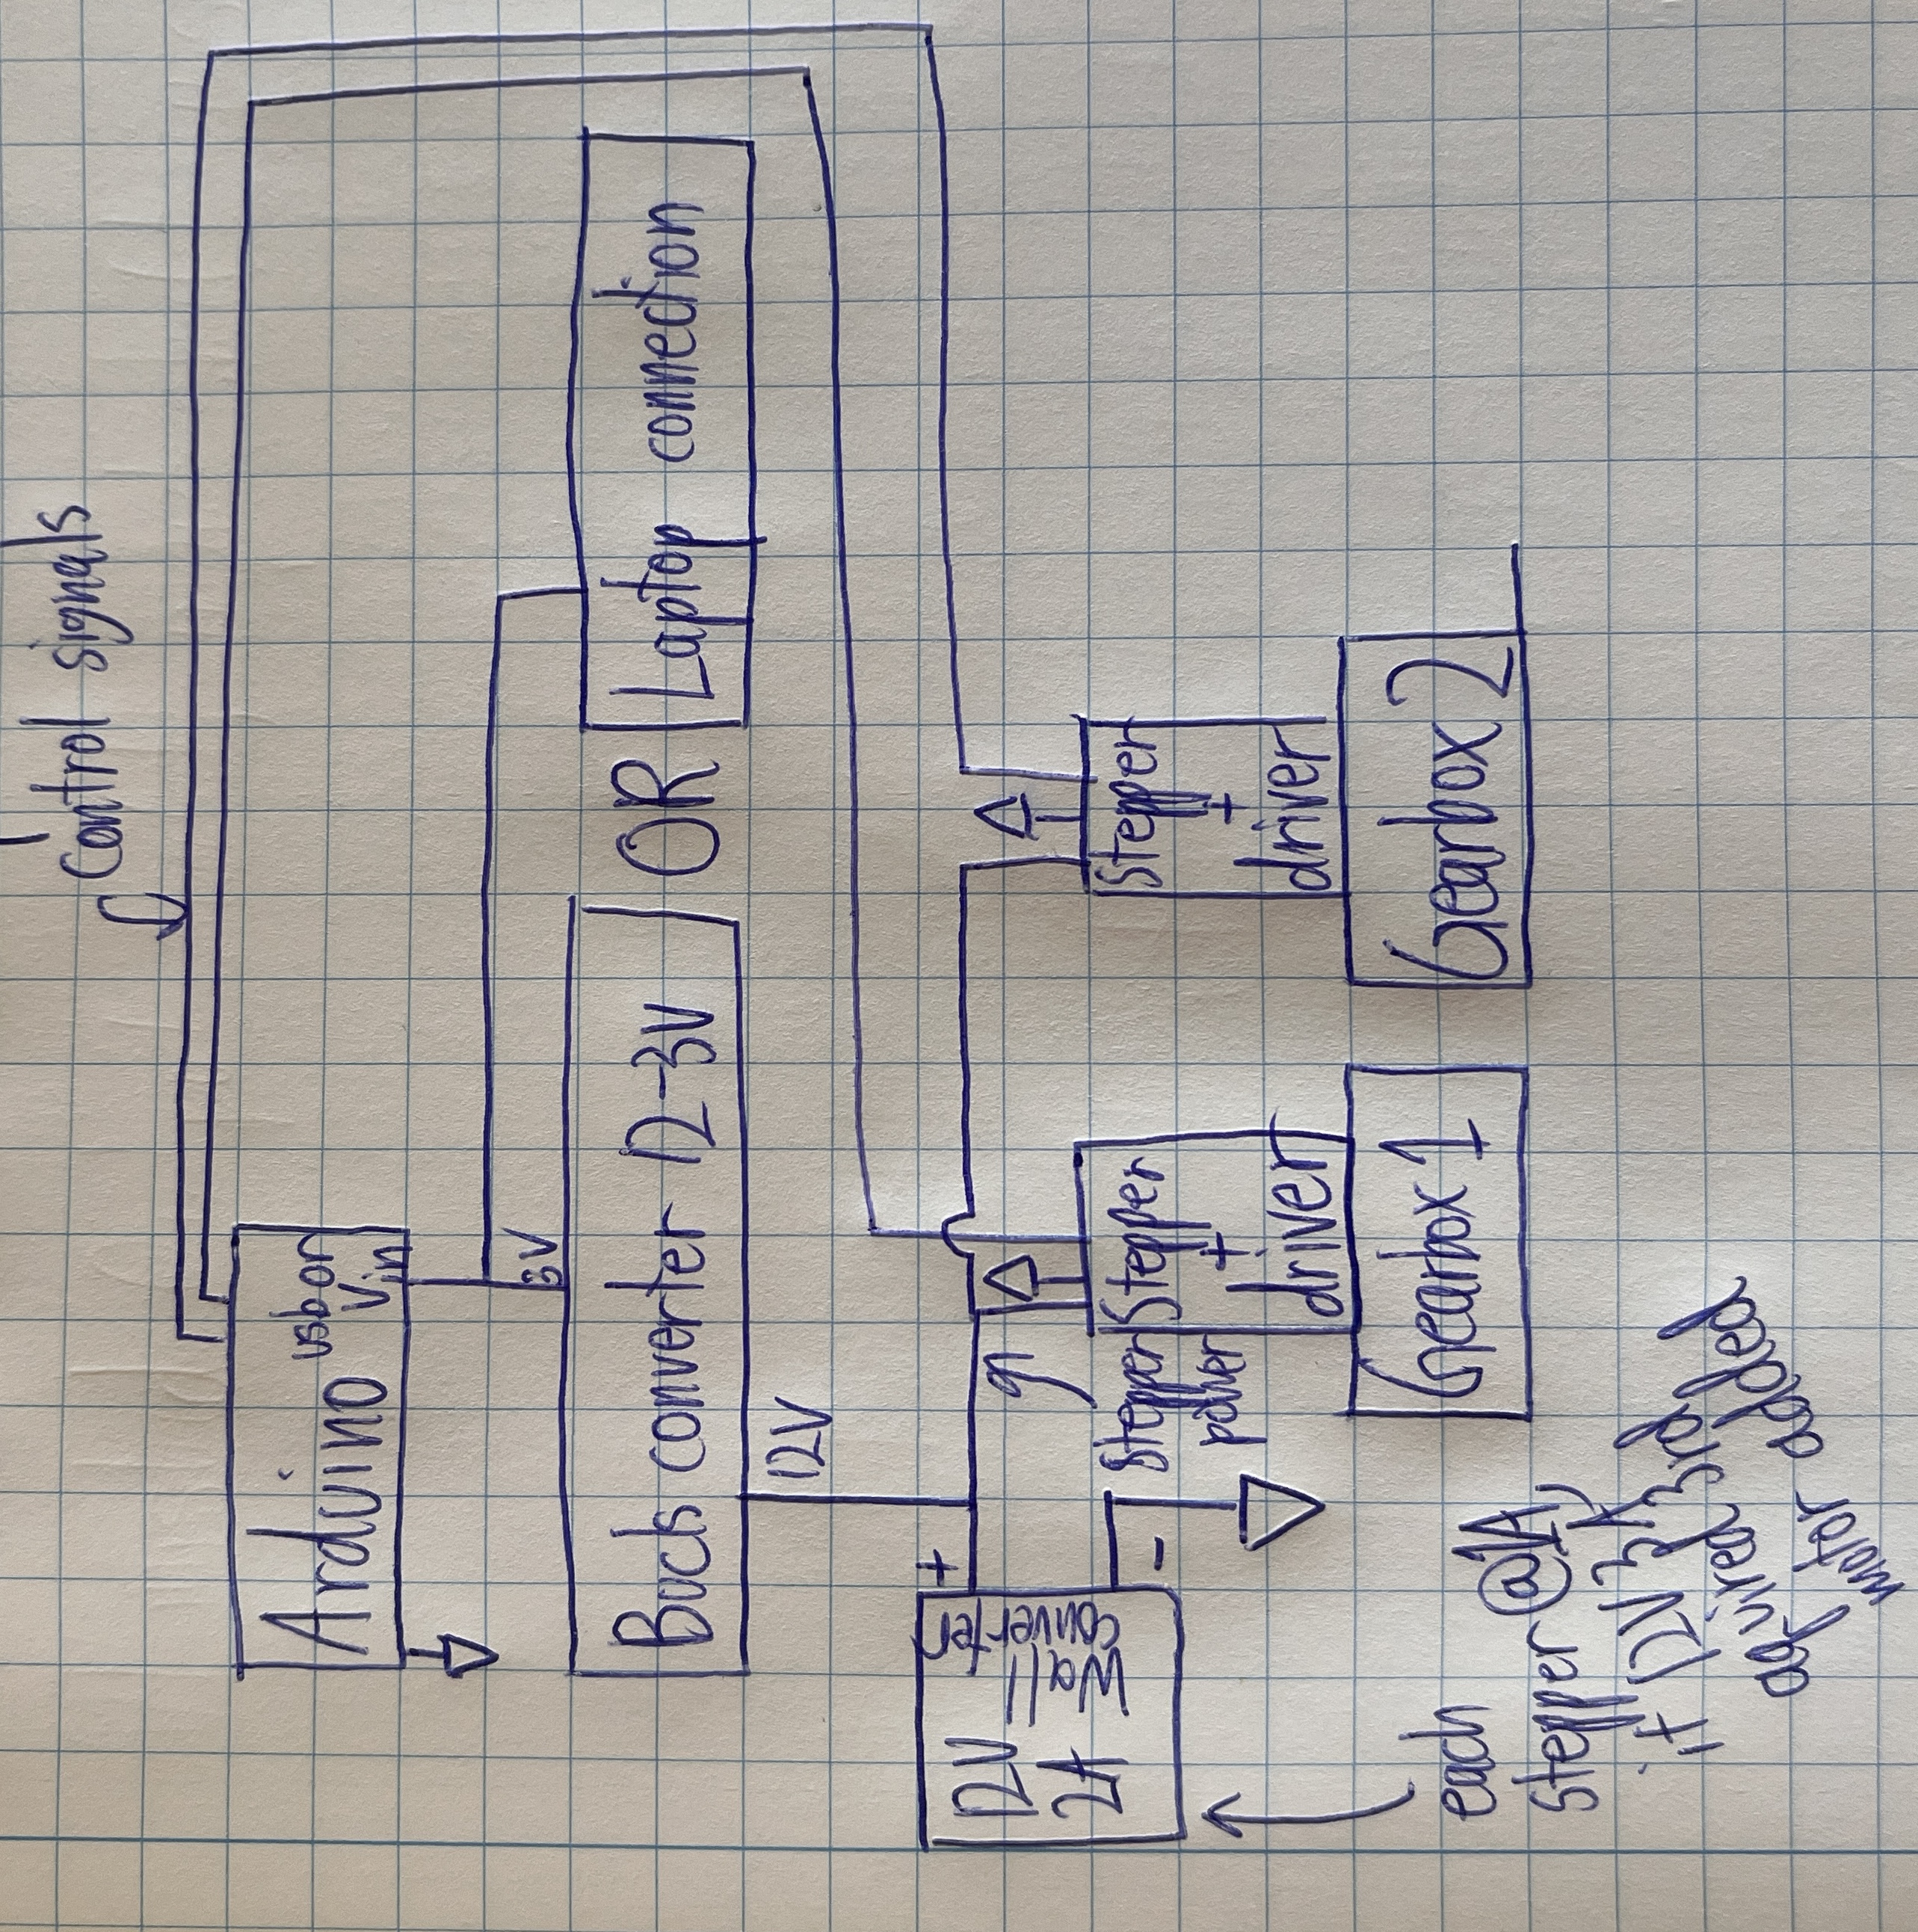 Control signals
Arduino
usb or
Vin
3V
Buck converter 12-3V
OR
Laptop connection
12V
+
-
12V
2A
Wall
converter
Stepper
power
Stepper
+
driver
Gearbox 1
Stepper
+
driver
Gearbox 2
each
stepper @1A,
if 12V 3A
3rd
motor added